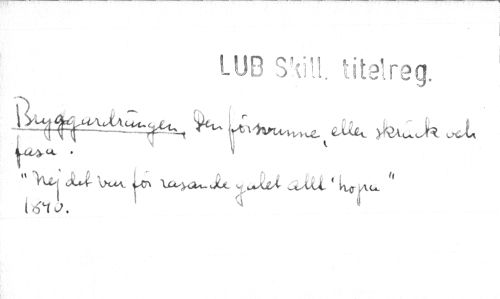 LUB Skill. titelreg.
Bryggardrängen, Den försvunne, eller skräck och
fasa.
"Nej det var för rasande galet allt 'hopa"
1840.